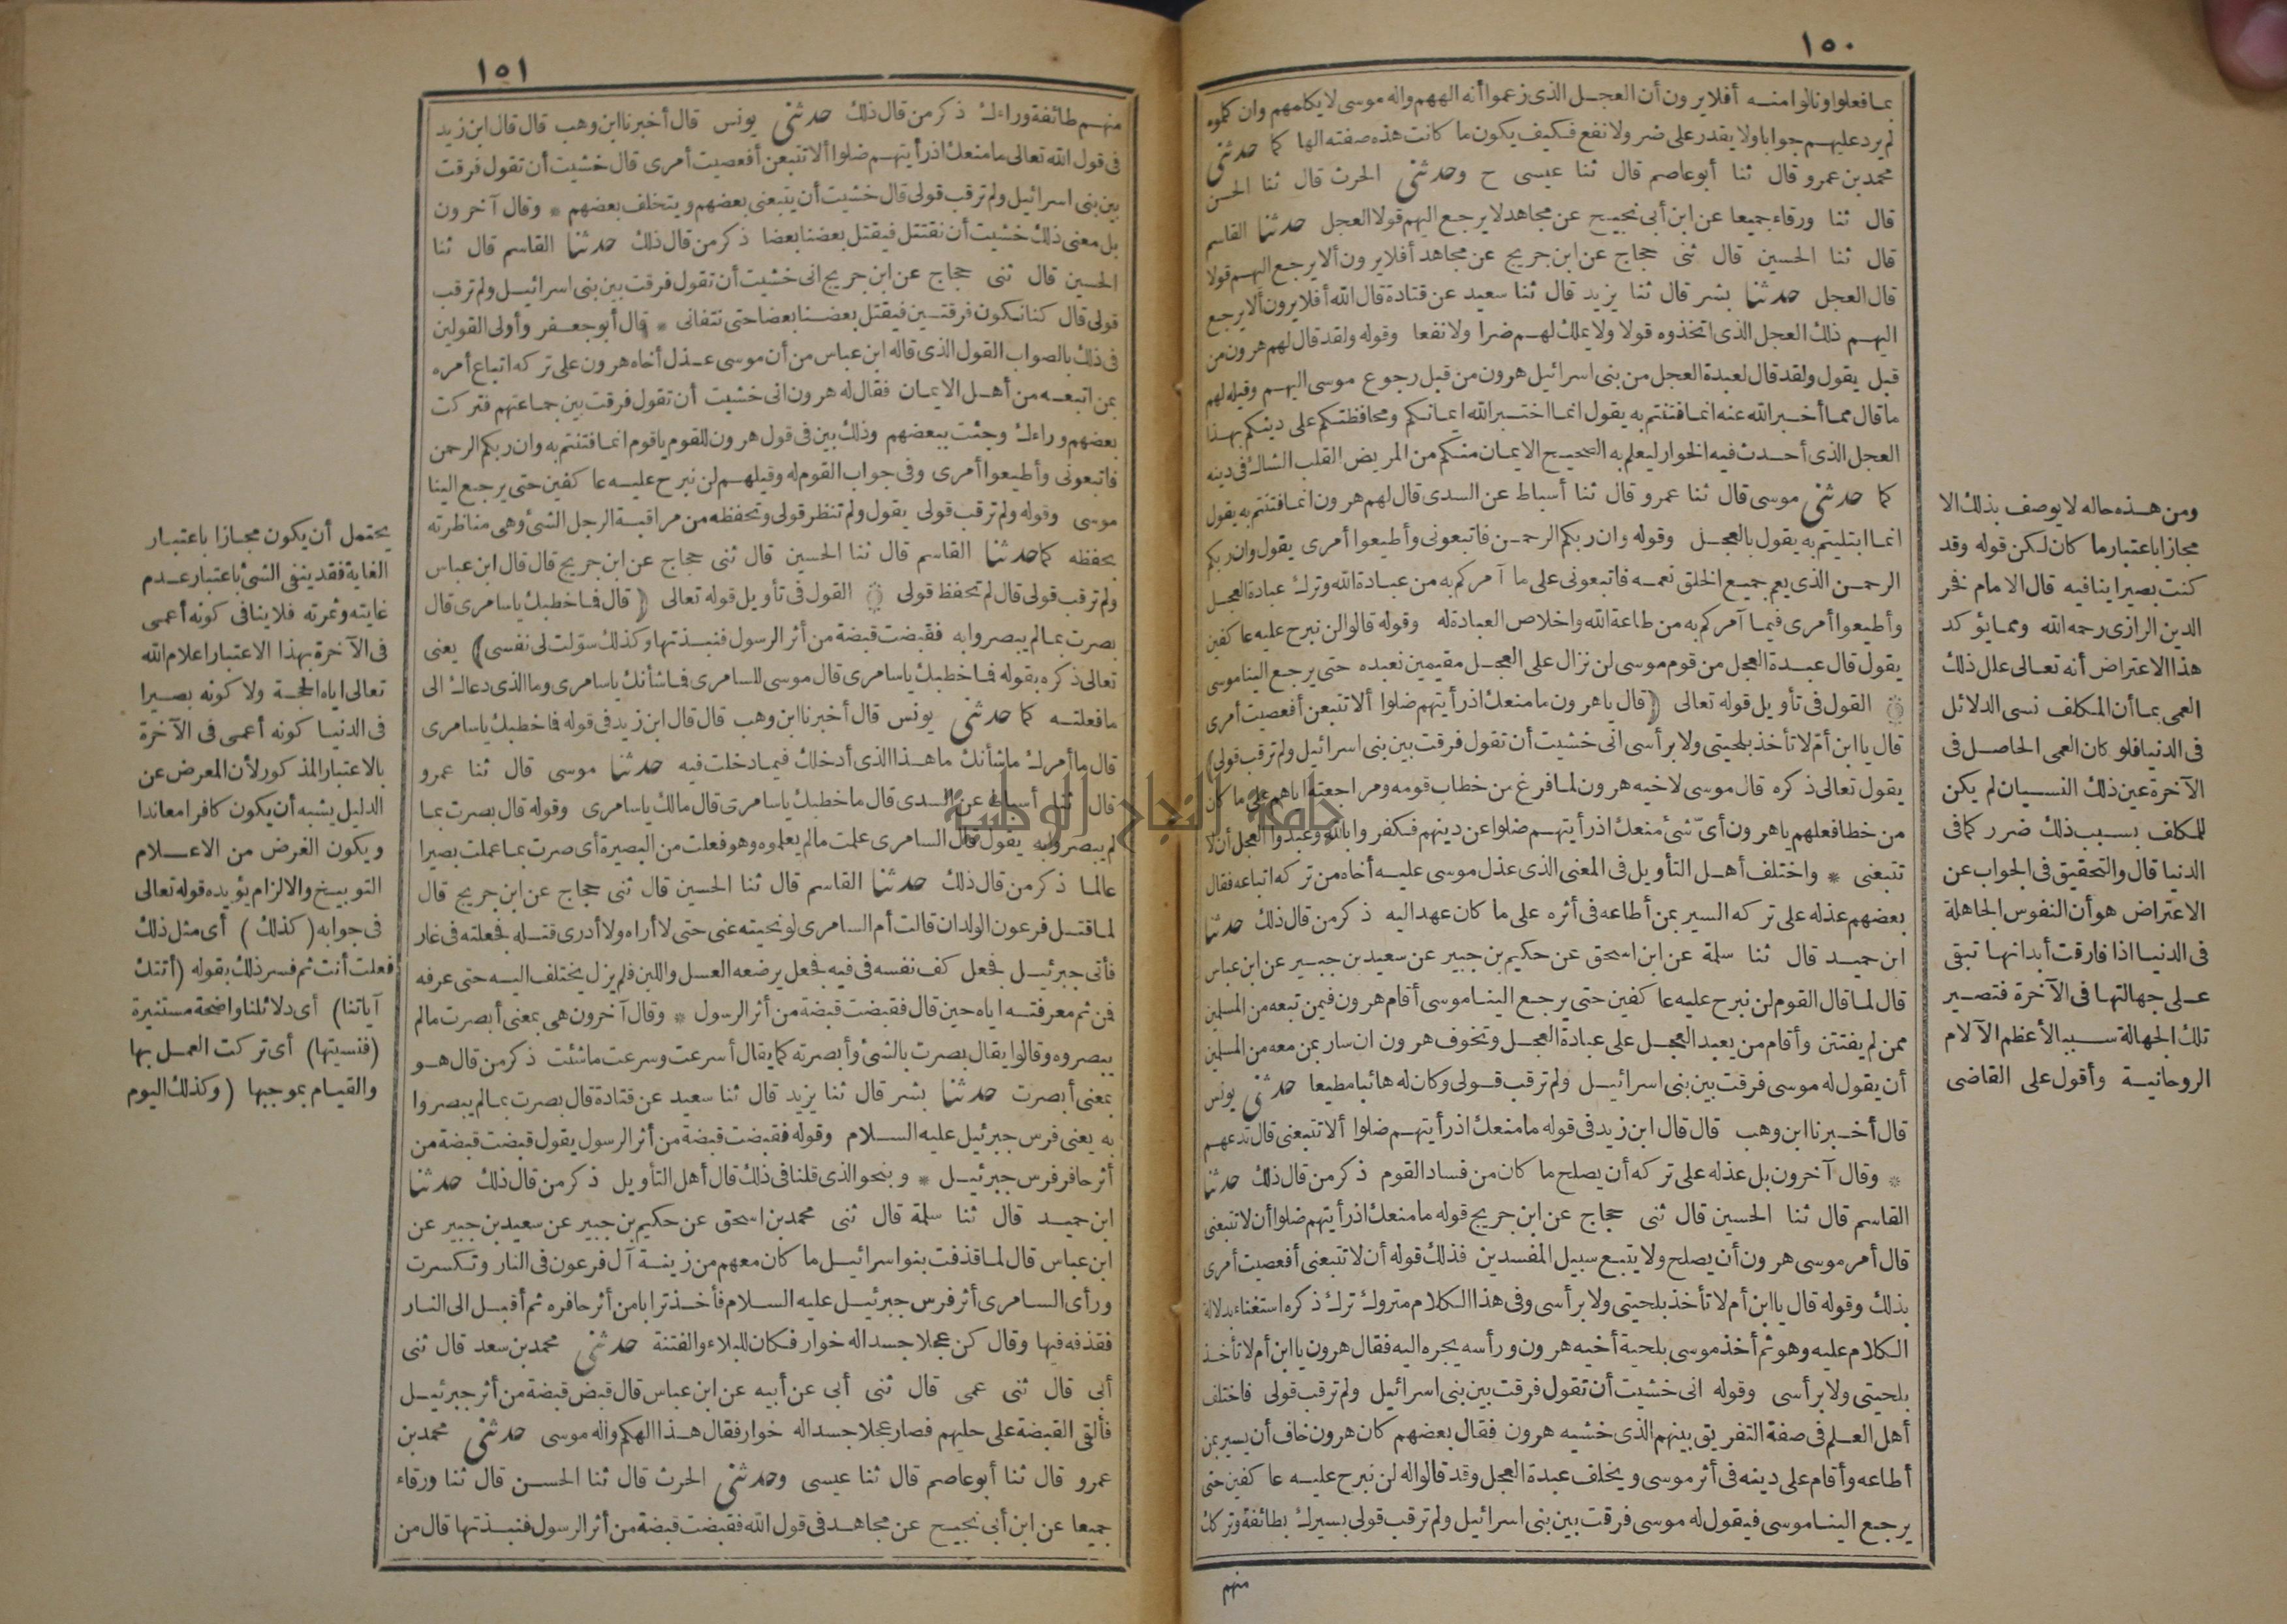 ١٥٠
بما فعلوا ونالوا منه أفلا يرون أن العجل الذى زعموا أنه الههم واله موسى لا يكلمهم وان كلموه
لم يرد عليهم جوابا ولا يقدر على ضر ولا نفع فكيف يكون ما كانت هذه صفته الها كما حدثنى
محمد بن عمرو قال ثنا أبو عاصم قال ثنا عيسى ح وحدثنى الحرث قال ثنا الحسن
قال ثنا ورقاء جميعا عن ابن أبى نجيح عن مجاهد لا يرجع اليهم قولا العجل حدثنا القاسم
قال ثنا الحسين قال ثنى حجاج عن ابن جريج عن مجاهد أفلا يرون ألا يرجع اليهم قولا
قال العجل حدثنا بشر قال ثنا يزيد قال ثنا سعيد عن قتادة قال الله أفلا يرون ألا يرجع
اليهم ذلك العجل الذى اتخذوه قولا ولا يملك لهم ضرا ولا نفعا وقوله ولقد قال لهم هرون من
قبل يقول ولقد قال لعبدة العجل من بنى اسرائيل هرون من قبل رجوع موسى اليهم وقيله لهم
ما قال مما أخبر الله عنه انما فتنتم به يقول انما اختبر الله ايمانكم ومحافظتكم على دينكم بهذا
العجل الذى أحدث فيه الخوار ليعلم به الصحيح الايمان منكم من المريض القلب الشاك فى دينه
كما حدثنى موسى قال ثنا عمرو قال ثنا أسباط عن السدى قال لهم هرون انما فتنتم به يقول
انما ابتليتم به يقول بالعجل وقوله وان ربكم الرحمن فاتبعونى وأطيعوا أمرى يقول وان ربكم
الرحمن الذى يعم جميع الخلق نعمه فاتبعونى على ما آمركم به من عبادة الله وترك عبادة العجل
وأطيعوا أمرى فيما آمركم به من طاعة الله واخلاص العبادة له وقوله قالوا لن نبرح عليه عاكفين
يقول قال عبدة العجل من قوم موسى لن نزال على العجل مقيمين نعبده حتى يرجع الينا موسى
القول فى تأويل قوله تعالى (قال ياهرون ما منعك اذ رأيتهم ضلوا ألا تتبعن أفعصيت أمرى
قال يا ابن أم لا تأخذ بلحيتى ولا برأسى انى خشيت أن تقول فرقت بين بنى اسرائيل ولم ترقب قولى)
يقول تعالى ذكره قال موسى لاخيه هرون لما فرغ من خطاب قومه ومراجعته اياهم على ما كان
من خطا فعلهم ياهرون أىّ شئ منعك اذ رأيتهم ضلوا عن دينهم فكفروا بالله وعبدوا العجل أن لا
تتبعنى * واختلف أهل التأويل فى المعنى الذى عذل موسى عليه أخاه من تركه اتباعه فقال
بعضهم عذله على تركه السير بمن أطاعه فى أثره على ما كان عهد اليه ذكر من قال ذلك حدثنا
ابن حميد قال ثنا سلمة عن ابن اسحق عن حكيم بن جبير عن سعيد بن جبير عن ابن عباس
قال لما قال القوم لن نبرح عليه عاكفين حتى يرجع الينا موسى أقام هرون فيمن تبعه من المسلمين
ممن لم يفتتن وأقام من يعبد العجل على عبادة العجل وتخوف هرون ان سار بمن معه من المسلمين
أن يقول له موسى فرقت بين بنى اسرائيل ولم ترقب قولى وكان له هائبا مطيعا حدثنى يونس
قال أخبرنا ابن وهب قال قال ابن زيد فى قوله ما منعك اذ رأيتهم ضلوا ألا تتبعنى قال تدعهم
* وقال آخرون بل عذله على تركه أن يصلح ما كان من فساد القوم ذكر من قال ذلك حدثنا
القاسم قال ثنا الحسين قال ثنى حجاج عن ابن جريج قوله ما منعك اذ رأيتهم ضلوا أن لا تتبعنى
قال أمر موسى هرون أن يصلح ولا يتبع سبيل المفسدين فذلك قوله أن لا تتبعنى أفعصيت أمرى
بذلك وقوله قال يا ابن أم لا تأخذ بلحيتى ولا برأسى وفى هذا الكلام متروك ترك ذكره استغناء بدلالة
الكلام عليه وهو ثم أخذ موسى بلحية أخيه هرون ورأسه يجره اليه فقال هرون يا ابن أم لا تأخذ
بلحيتى ولا برأسى وقوله انى خشيت أن تقول فرقت بين بنى اسرائيل ولم ترقب قولى فاختلف
أهل العلم فى صفة التفريق بينهم الذى خشيه هرون فقال بعضهم كان هرون خاف أن يسير بمن
أطاعه وأقام على دينه فى أثر موسى ويخلف عبدة العجل وقد قالوا له لن نبرح عليه عاكفين حتى
يرجع الينا موسى فيقول له موسى فرقت بين بنى اسرائيل ولم ترقب قولى بسيرك بطائفة وتركك
منهم
ومن هذه حاله لا يوصف بذلك الا
مجازا باعتبار ما كان لكن قوله وقد
كنت بصيرا ينافيه قال الامام فخر
الدين الرازى رحمه الله ومما يؤكد
هذا الاعتراض أنه تعالى علل ذلك
العمى بما أن المكلف نسى الدلائل
فى الدنيا فلو كان العمى الحاصل فى
الآخرة عين ذلك النسيان لم يكن
للمكلف بسبب ذلك ضرر كما فى
الدنيا قال والتحقيق فى الجواب عن
الاعتراض هو أن النفوس الجاهلة
فى الدنيا اذا فارقت أبدانها تبقى
على جهالتها فى الآخرة فتصير
تلك الجهالة سببا لأعظم الآلام
الروحانية وأقول على القاضى
١٥١
منهم طائفة وراءك ذكر من قال ذلك حدثنى يونس قال أخبرنا ابن وهب قال قال ابن زيد
فى قول الله تعالى ما منعك اذ رأيتهم ضلوا ألا تتبعن أفعصيت أمرى قال خشيت أن تقول فرقت
بين بنى اسرائيل ولم ترقب قولى قال خشيت أن يتبعنى بعضهم ويتخلف بعضهم * وقال آخرون
بل معنى ذلك خشيت أن نقتتل فيقتل بعضنا بعضا ذكر من قال ذلك حدثنا القاسم قال ثنا
الحسين قال ثنى حجاج عن ابن جريج انى خشيت أن تقول فرقت بين بنى اسرائيل ولم ترقب
قولى قال كنا نكون فرقتين فيقتل بعضنا بعضا حتى نتفانى * قال أبو جعفر وأولى القولين
فى ذلك بالصواب القول الذى قاله ابن عباس من أن موسى عذل أخاه هرون على تركه اتباع أمره
بمن اتبعه من أهل الايمان فقال له هرون انى خشيت أن تقول فرقت بين جماعتهم فتركت
بعضهم وراءك وجئت ببعضهم وذلك بين فى قول هرون للقوم ياقوم انما فتنتم به وان ربكم الرحمن
فاتبعونى وأطيعوا أمرى وفى جواب القوم له وقيلهم لن نبرح عليه عاكفين حتى يرجع الينا
موسى وقوله ولم ترقب قولى يقول ولم تنظر قولى وتحفظه من مراقبة الرجل الشئ وهى مناظرته
بحفظه كما حدثنا القاسم قال ثنا الحسين قال ثنى حجاج عن ابن جريج قال قال ابن عباس
ولم ترقب قولى قال لم تحفظ قولى القول فى تأويل قوله تعالى (قال فما خطبك ياسامرى قال
بصرت بما لم يبصروا به فقبضت قبضة من أثر الرسول فنبذتها وكذلك سوّلت لى نفسى) يعنى
تعالى ذكره بقوله فما خطبك ياسامرى قال موسى للسامرى فما شأنك ياسامرى وما الذى دعاك الى
ما فعلته كما حدثنى يونس قال أخبرنا ابن وهب قال قال ابن زيد فى قوله فما خطبك ياسامرى
قال ما أمرك ما شأنك ما هذا الذى أدخلك فيما دخلت فيه حدثنا موسى قال ثنا عمرو
قال ثنا أسباط عن السدى قال ما خطبك ياسامرى قال مالك ياسامرى وقوله قال بصرت بما
لم يبصروا به يقول قال السامرى علمت ما لم يعلموه وهو فعلت من البصيرة أى صرت بما عملت بصيرا
عالما ذكر من قال ذلك حدثنا القاسم قال ثنا الحسين قال ثنى حجاج عن ابن جريج قال
لما قتل فرعون الولدان قالت أم السامرى لو نحيته عنى حتى لا أراه ولا أدرى قتله فجعلته فى غار
فأتى جبرئيل فجعل كف نفسه فى فيه فجعل يرضعه العسل واللبن فلم يزل يختلف اليه حتى عرفه
فمن ثم معرفته اياه حين قال فقبضت قبضة من أثر الرسول * وقال آخرون هى بمعنى أبصرت ما لم
يبصروه وقالوا يقال بصرت بالشئ وأبصرته كما يقال أسرعت وسرعت ما شئت ذكر من قال هو
بمعنى أبصرت حدثنا بشر قال ثنا يزيد قال ثنا سعيد عن قتادة قال بصرت بما لم يبصروا
به يعنى فرس جبرئيل عليه السلام وقوله فقبضت قبضة من أثر الرسول يقول قبضت قبضة من
أثر حافر فرس جبرئيل * وبنحو الذى قلنا فى ذلك قال أهل التأويل ذكر من قال ذلك حدثنا
ابن حميد قال ثنا سلمة قال ثنى محمد بن اسحق عن حكيم بن جبير عن سعيد بن جبير عن
ابن عباس قال لما قذفت بنو اسرائيل ما كان معهم من زينة آل فرعون فى النار وتكسرت
ورأى السامرى أثر فرس جبرئيل عليه السلام فأخذ ترابا من أثر حافره ثم أقبل الى النار
فقذفه فيها وقال كن عجلا جسدا له خوار فكان للبلاء والفتنة حدثنى محمد بن سعد قال ثنى
أبى قال ثنى عمى قال ثنى أبى عن أبيه عن ابن عباس قال قبض قبضة من أثر جبرئيل
فألقى القبضة على حليهم فصار عجلا جسدا له خوار فقال هذا الهكم واله موسى حدثنى محمد بن
عمرو قال ثنا أبو عاصم قال ثنا عيسى وحدثنى الحرث قال ثنا الحسن قال ثنا ورقاء
جميعا عن ابن أبى نجيح عن مجاهد فى قول الله فقبضت قبضة من أثر الرسول فنبذتها قال من
يحتمل أن يكون مجازا باعتبار
الغاية فقد ينفى الشئ باعتبار عدم
غايته وثمرته فلا ينافى كونه أعمى
فى الآخرة بهذا الاعتبار اعلام الله
تعالى اياه الحجة ولا كونه بصيرا
فى الدنيا كونه أعمى فى الآخرة
بالاعتبار المذكور لأن المعرض عن
الدليل يشبه أن يكون كافرا معاندا
ويكون الغرض من الاعلام
التوبيخ والالزام يؤيده قوله تعالى
فى جوابه (كذلك) أى مثل ذلك
فعلت أنت ثم فسر ذلك بقوله (أتتك
آياتنا) أى دلائلنا واضحة مستنيرة
(فنسيتها) أى تركت العمل بها
والقيام بموجبها (وكذلك اليوم
جامعة النجاح الوطنية